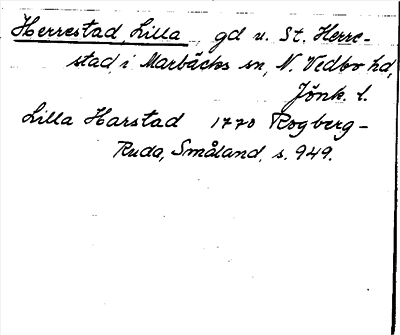 Herrestad, Lilla, gd u. St. Herre-
stad, i Marbäcks sn, N. Vedbo hd,
Jönk. l.
Lilla Harstad 1770 Rogberg-
Ruda, Småland, s. 949.